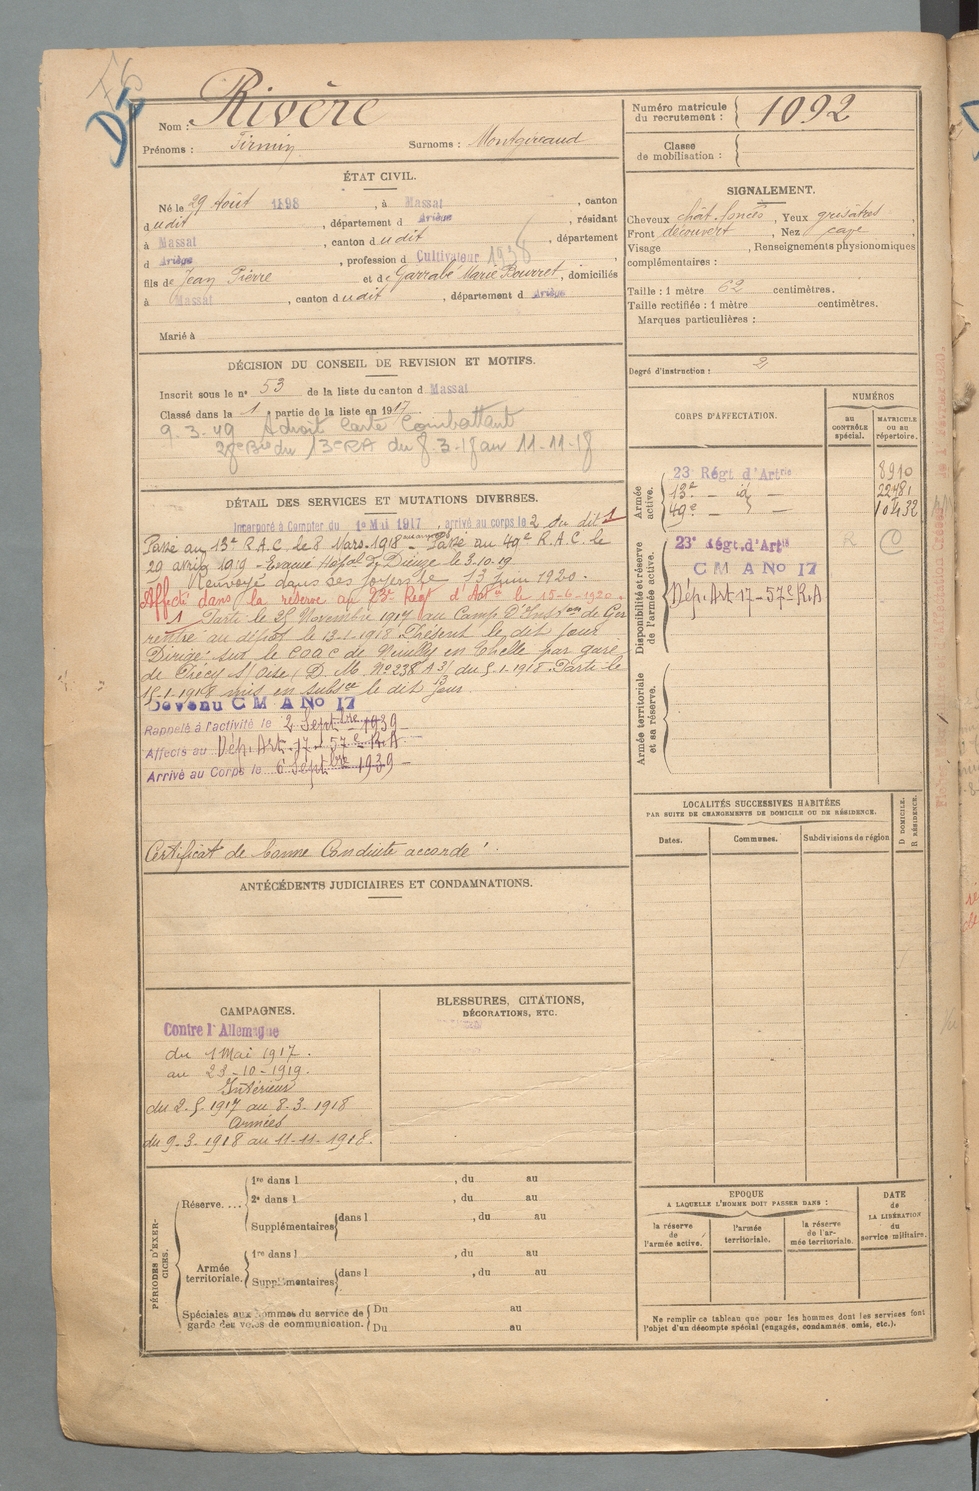 Nom : Rivère
Prénoms : Firmin Surnoms : Montgireaud
ÉTAT CIVIL.
Né le 29 Août 1898, à Massat, canton
dudit, département d Ariège, résidant
à Massat, canton dudit, département
d Ariège, profession d Cultivateur 1938
fils de Jean Pierre et de Garrabé Marie Bourret, domiciliés
à Massat, canton dudit, département d Ariège
Marié à
DÉCISION DU CONSEIL DE REVISION ET MOTIFS.
Inscrit sous le n° 53 de la liste du canton d Massat
Classé dans la 1 partie de la liste en 1917
9-3-49 A droit Carte Combattant
28e Bie du 13e RA du 8-3-18 au 11-11-18
DÉTAIL DES SERVICES ET MUTATIONS DIVERSES.
Incorporé à Compter du 1er Mai 1917, arrivé au corps le 2 du dit 1
Passé au 13e R.A.C. le 8 Mars 1918 - Passé au 49e R.A.C. le
20 avril 1919 - Evacué Hôpal de Dieuze le 3.10.19
Renvoyé dans ses foyers le 13 juin 1920.
Affecté dans la réserve au 23e Régt d'Artie le 15-6-1920.
1 Parti le 25 Novembre 1917 au Camp D'Instron de
rentré au dépôt le 13-1-1918 Présent le dit jour
Dirigé sur le COAC de Neuilly en Thelle par gare
de Précy s/Oise, D.M. No 238 A 3/ du 5-1-1918. Parti le
15-1-1918 mis en subsce le dit jour
Devenu C M A No 17
Rappelé à l'activité le 2 Septbre 1939 -
Affecté au Dép. Art. 17 - 57e R.A
Arrivé au Corps le 6 Septbre 1939 -
Certificat de bonne Conduite accordé.
ANTÉCÉDENTS JUDICIAIRES ET CONDAMNATIONS.
CAMPAGNES.
Contre l'Allemagne
du 1 Mai 1917.
au 23-10-1919.
Intérieur
du 2-5-1917 au 8-3-1918
Armées
du 9-3-1918 au 11-11-1918.
BLESSURES, CITATIONS,
DÉCORATIONS, ETC.
PÉRIODES D'EXERCICES.
Réserve....
1re dans l , du au
2e dans l , du au
Supplémentaires dans l , du au
Armée territoriale.
1re dans l , du au
Supplémentaires dans l , du au
Spéciales aux hommes du service de
garde des voies de communication.
Du au
Du au
Numéro matricule
du recrutement : 1092
Classe
de mobilisation :
SIGNALEMENT.
Cheveux chât. foncés, Yeux grisâtres,
Front découvert, Nez cave
Visage , Renseignements physionomiques
complémentaires :
Taille : 1 mètre 62 centimètres.
Taille rectifiée : 1 mètre centimètres.
Marques particulières :
Degré d'instruction : 2
CORPS D'AFFECTATION.
NUMÉROS
au
CONTRÔLE
spécial.
MATRICULE
ou au
répertoire.
Armée
active.
23 Régt d'Artrie 8910
13e - id - 22481
49e - 10432
Disponibilité et réserve
de l'armée active.
23e Régt.d'Artie R
C M A No 17
Dép. Art 17 - 57e R.A
Armée territoriale
et sa réserve.
LOCALITÉS SUCCESSIVES HABITÉES
PAR SUITE DE CHANGEMENTS DE DOMICILE OU DE RÉSIDENCE.
Dates.
Communes.
Subdivisions de région
D. DOMICILE.
R. RÉSIDENCE.
EPOQUE
A LAQUELLE L'HOMME DOIT PASSER DANS :
la réserve
de
l'armée active.
l'armée
territoriale.
la réserve
de l'ar-
mée territoriale.
DATE
de
LA LIBÉRATION
du
service militaire.
Ne remplir ce tableau que pour les hommes dont les services font
l'objet d'un décompte spécial (engagés, condamnés, omis, etc.).